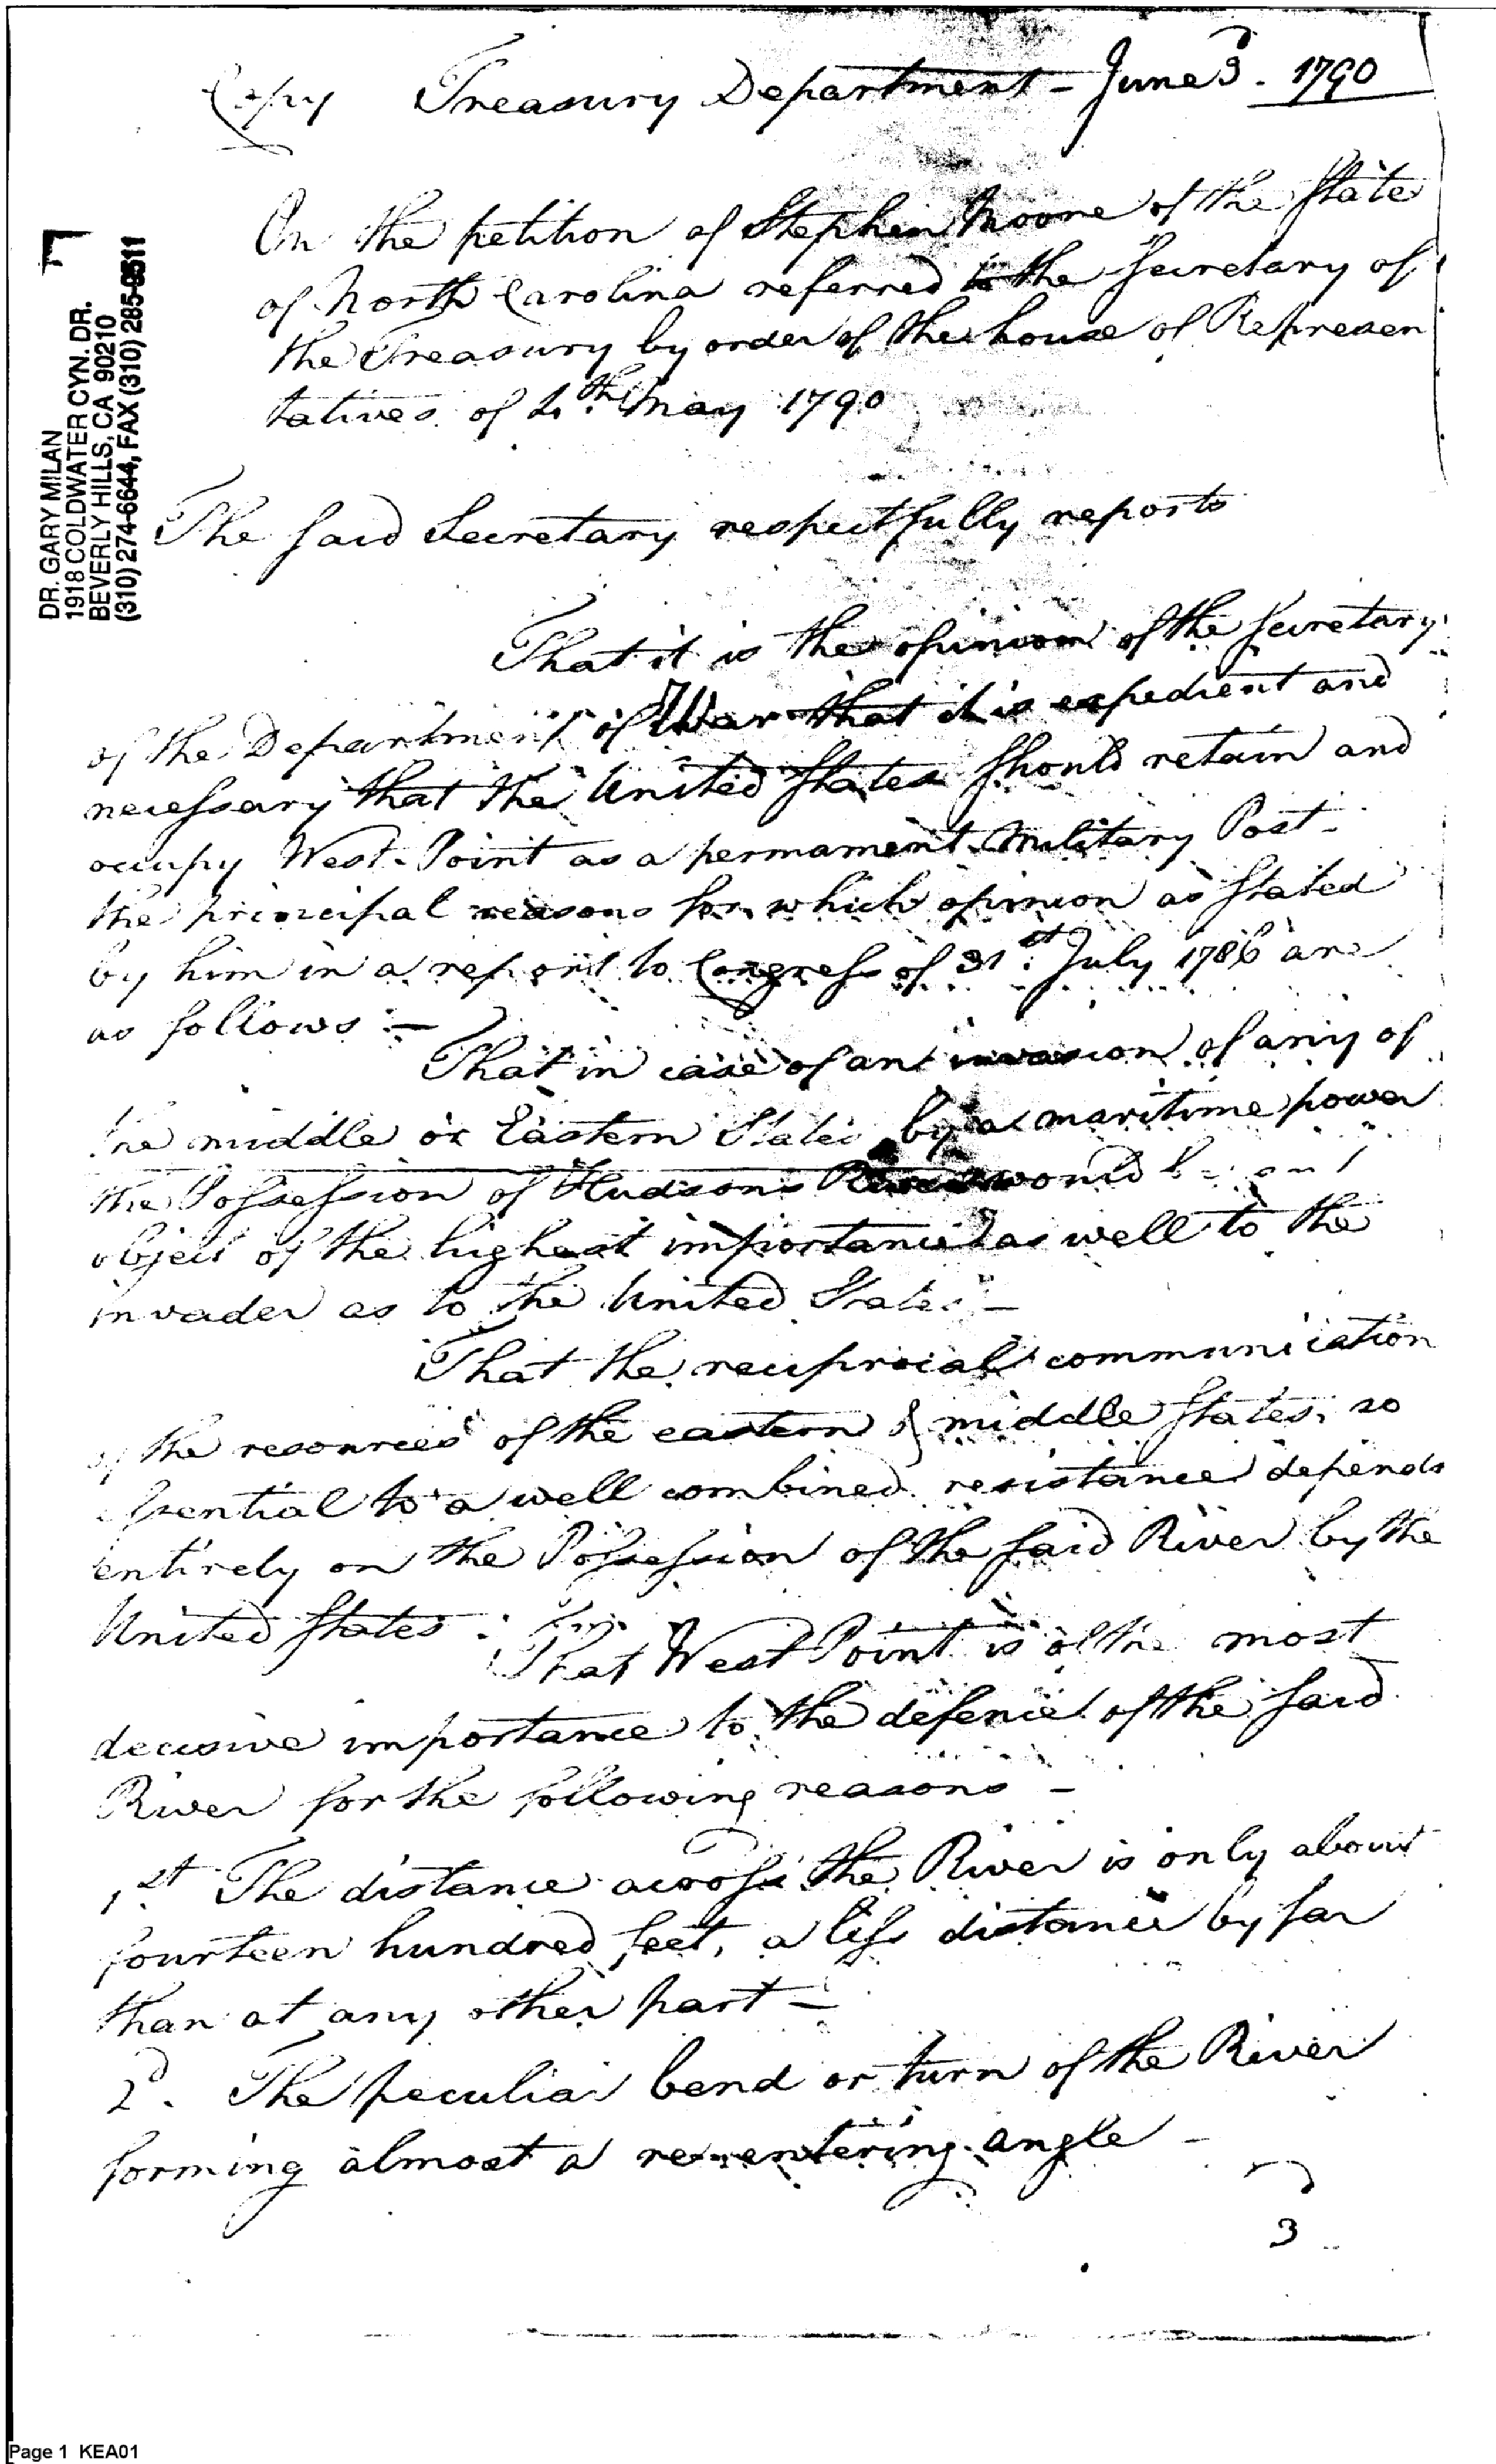 Copy Treasury Department - June 3. 1790
On the petition of Stephen Moore of the State
of North Carolina referred to the Secretary of
the Treasury by order of the house of Represen
tatives of 4.th May 1790
DR. GARY MILAN
1918 COLDWATER CYN. DR.
BEVERLY HILLS, CA 90210
(310) 274-6644, FAX (310) 285-9511
The said Secretary respectfully reports
That it is the opinion of the Secretary
of the Department of War that it is expedient and
necessary that the United States should retain and
occupy West-Point as a permament Military Post -
the principal reasons for which opinion as stated
by him in a report to Congress of 31.st July 1786 are
as follows :-
That in case of an invasion of any of
the middle or Eastern States by a maritime power
the Possession of Hudsons River would be an
object of the highest importance as well to the
invader as to the United States -
That the reciprocal communication
of the resources of the eastern & middle States, so
essential to a well combined resistance depends
entirely on the Possession of the said River by the
United States.
That West Point is of the most
decisive importance to the defence of the said
River for the following reasons -
1.st The distance across the River is only about
fourteen hundred feet, a less distance by far
than at any other part -
2.d The peculiar bend or turn of the River
forming almost a re-entering angle -
3
Page 1 KEA01